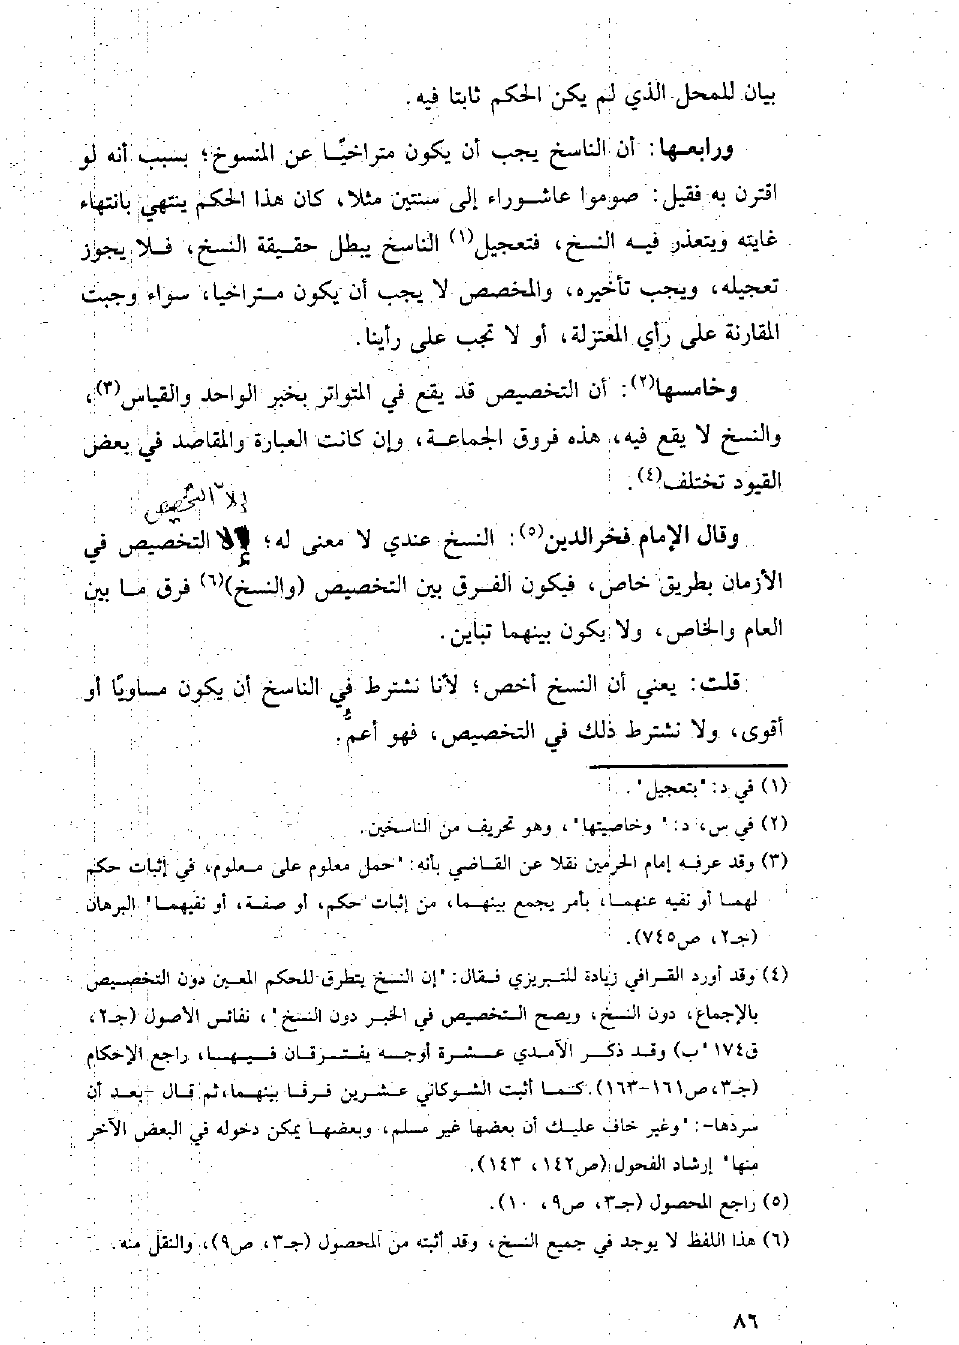 بيان للمحل الذي لم يكن الحكم ثابتا فيه.
ورابعها: أن الناسخ يجب أن يكون متراخيًا عن المنسوخ؛ بسبب أنه لو
اقترن به فقيل: صوموا عاشوراء إلى سنتين مثلا، كان هذا الحكم ينتهي بانتهاء
غايته ويتعذر فيه النسخ، فتعجيل(١) الناسخ يبطل حقيقة النسخ، فلا يجوز
تعجيله، ويجب تأخيره، والمخصص لا يجب أن يكون متراخيا، سواء وجبت
المقارنة على رأي المعتزلة، أو لا تجب على رأينا.
وخامسها(٢): أن التخصيص قد يقع في المتواتر بخبر الواحد والقياس(٣)،
والنسخ لا يقع فيه، هذه فروق الجماعة، وإن كانت العبارة والمقاصد في بعض
القيود تختلف(٤).
إلا التخصيص
وقال الإمام فخرالدين(٥): النسخ عندي لا معنى له؛ إلا التخصيص في
الأزمان بطريق خاص، فيكون الفرق بين التخصيص (والنسخ)(٦) فرق ما بين
العام والخاص، ولا يكون بينهما تباين.
قلت: يعني أن النسخ أخص؛ لأنا نشترط في الناسخ أن يكون مساويًا أو
أقوى، ولا نشترط ذلك في التخصيص، فهو أعمُّ.
(١) في د: "بتعجيل".
(٢) في س، د: "وخاصيتها"، وهو تحريف من الناسخين.
(٣) وقد عرفه إمام الحرمين نقلا عن القاضي بأنه: "حمل معلوم على معلوم، في إثبات حكم
لهما أو نفيه عنهما، بأمر يجمع بينهما، من إثبات حكم، أو صفة، أو نفيهما" البرهان
(جـ٢، ص٧٤٥).
(٤) وقد أورد القرافي زيادة للتبريزي فقال: "إن النسخ يتطرق للحكم المعين دون التخصيص
بالإجماع، دون النسخ، ويصح التخصيص في الخبر دون النسخ"، نفائس الأصول (جـ٢،
ق١٧٤"ب) وقد ذكر الآمدي عشرة أوجه يفترقان فيها، راجع الإحكام
(جـ٣، ص١٦١-١٦٣). كما أثبت الشوكاني عشرين فرقا بينهما، ثم قال -بعد أن
سردها-: "وغير خاف عليك أن بعضها غير مسلم، وبعضها يمكن دخوله في البعض الآخر
منها" إرشاد الفحول (ص١٤٢، ١٤٣).
(٥) راجع المحصول (جـ٣، ص٩، ١٠).
(٦) هذا اللفظ لا يوجد في جميع النسخ، وقد أثبته من المحصول (جـ٣، ص٩)، والنقل منه.
٨٦